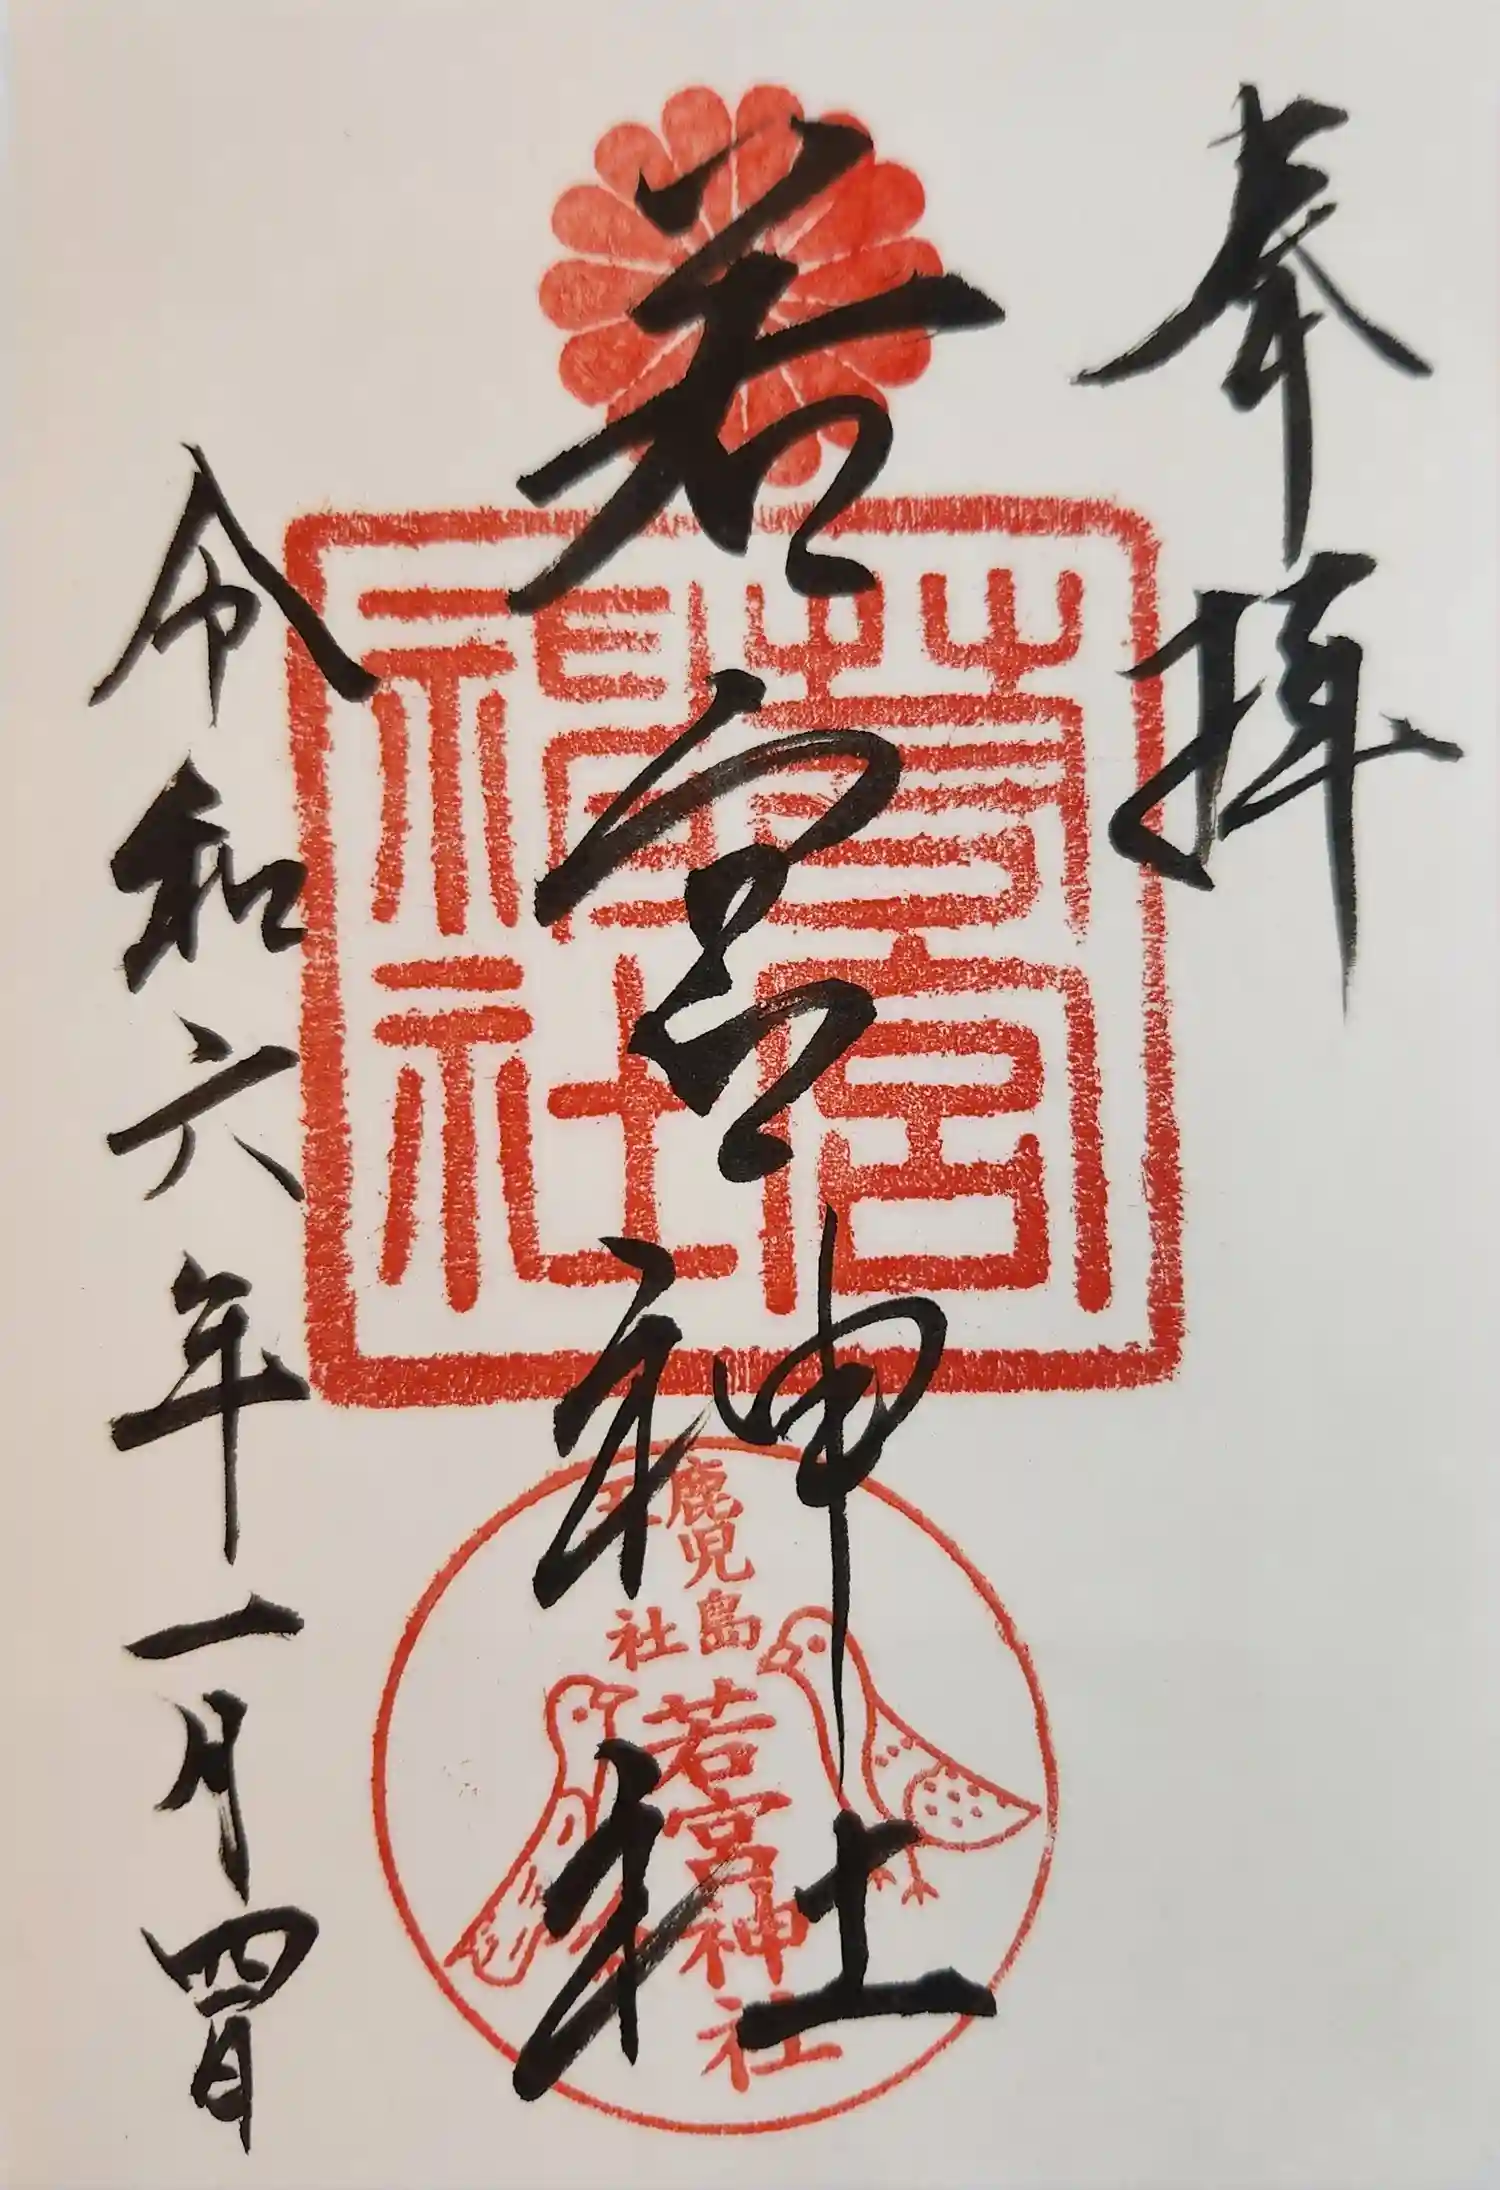 奉拝
若宮神社
令和六年一月四日
若宮神社
鹿児島
五社
若宮神社